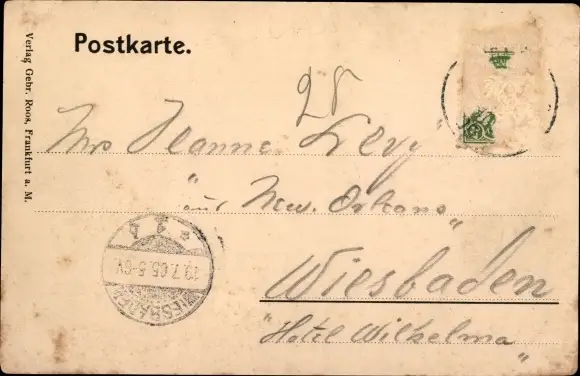 Postkarte.
Verlag Gebr. Roos, Frankfurt a. M.
Mrs Jeanne Levy
"aus New. Orleans"
Wiesbaden
"Hotel Wilhelma"
WIESBADEN
.7.05.5-6V.